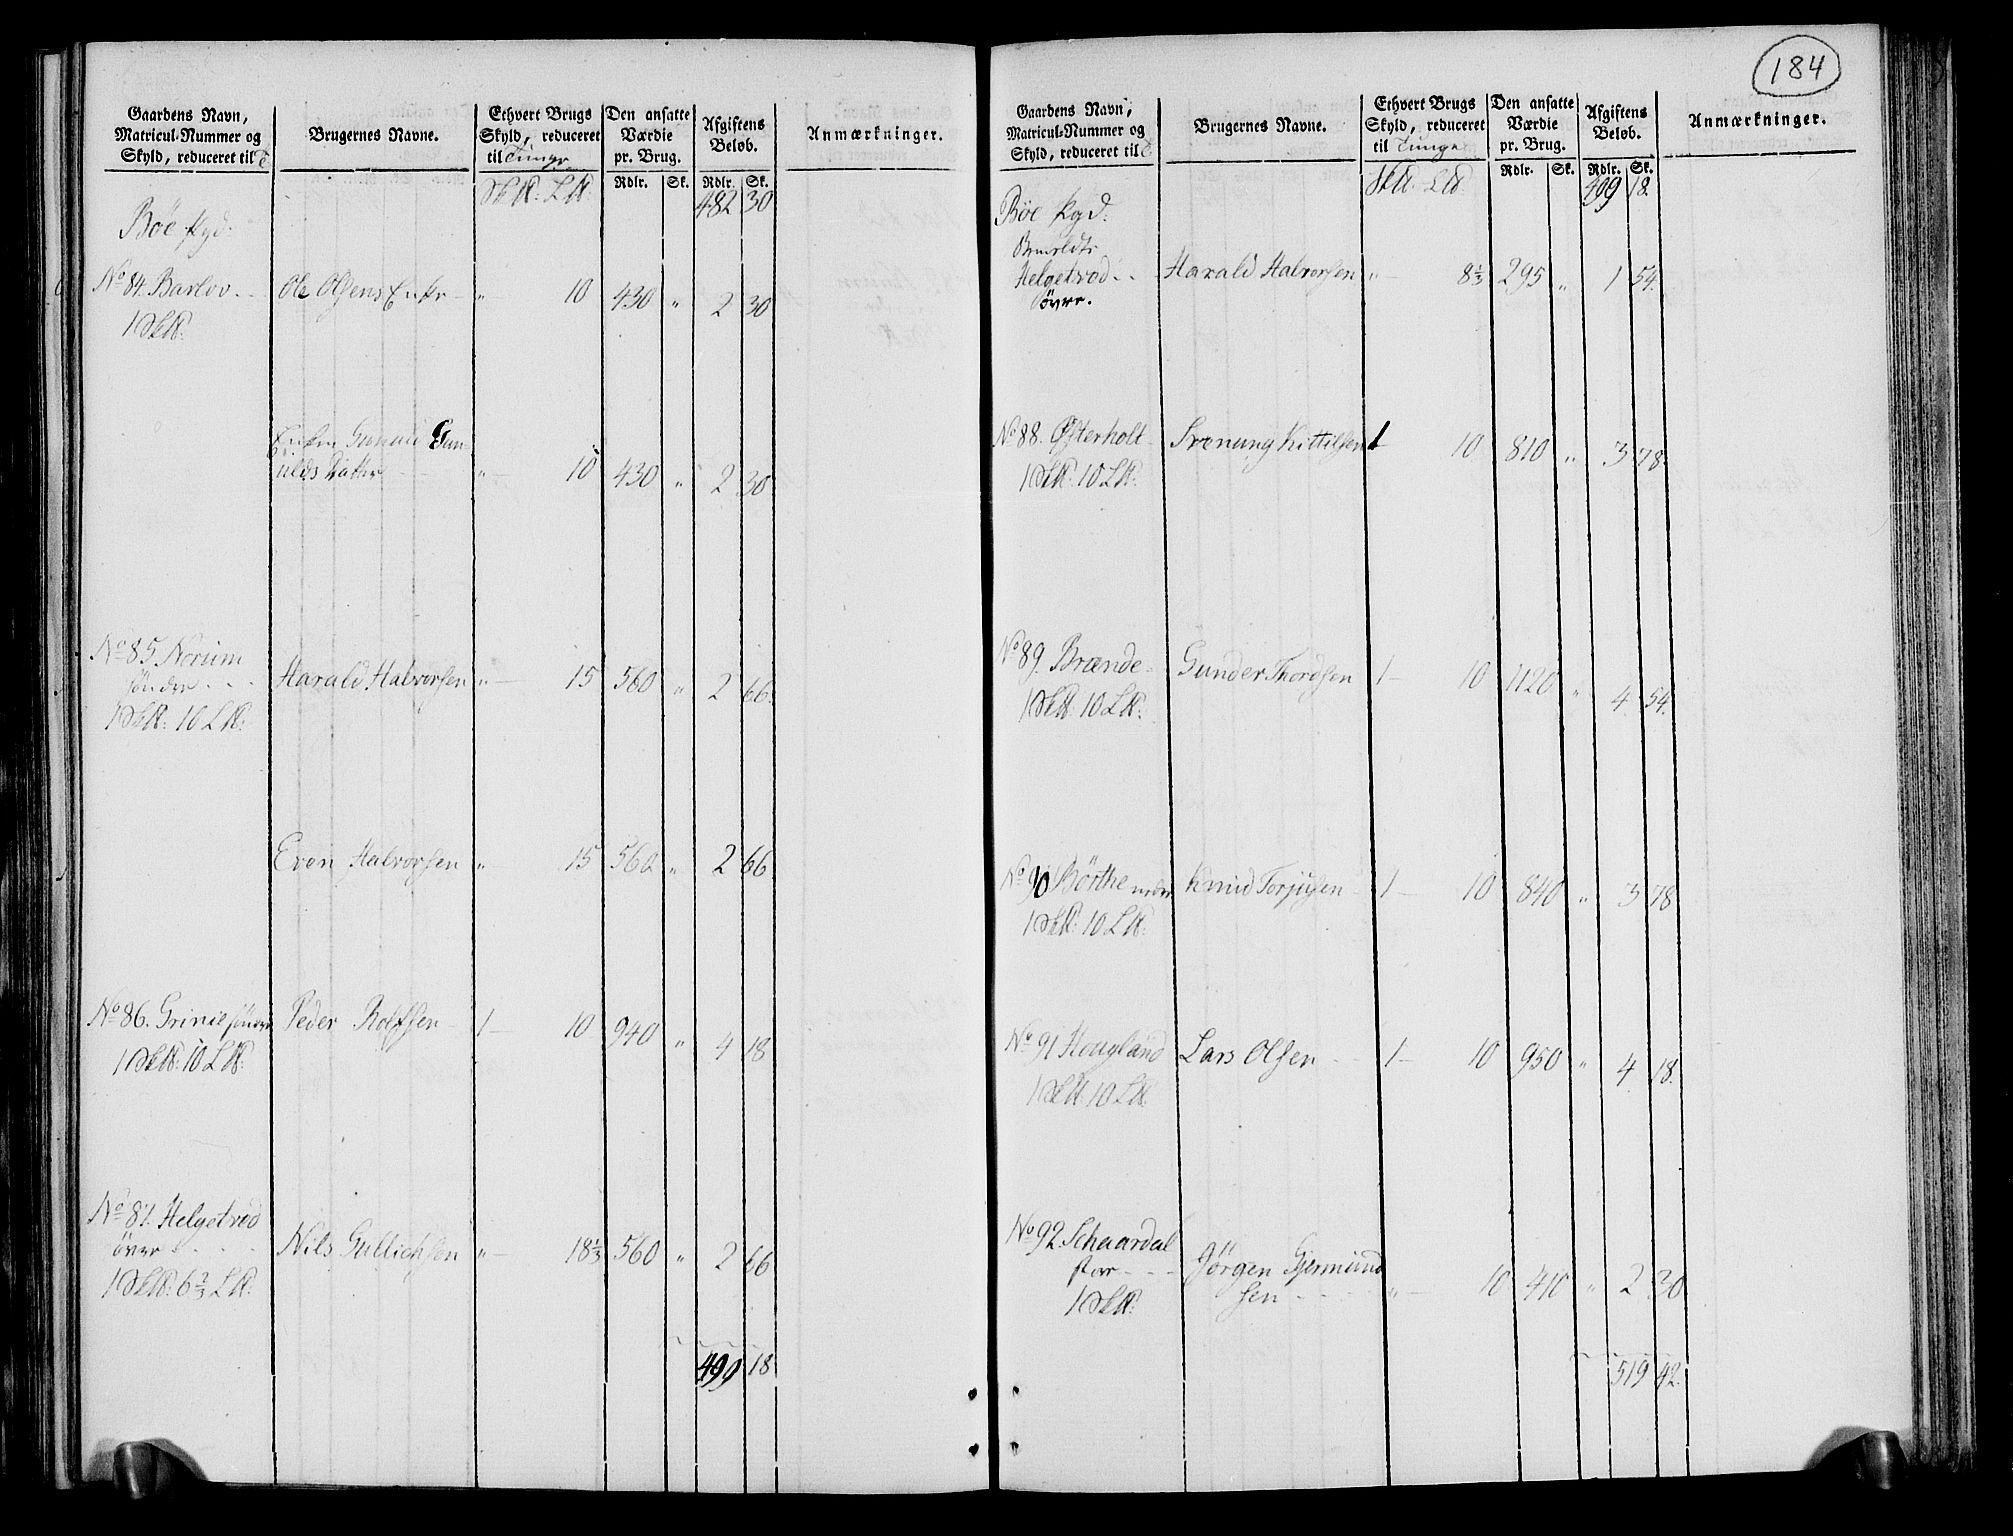 184
Gaardens Navn, Matricul-Nummer og Skyld, reduceret til T
Brugernes Navne.
Ethvert Brugs Skyld, reduceret til Tunge
Den ansatte Værdie pr. Brug.
Afgiftens Beløb.
Anmærkninger.
Rdlr. Sk. Rdlr. Sk.
Sk℔. L℔. 482 30
Böe Pgd:
No 84. Barlov - - Ole Olsens Enke - " 10 430 " 2 30
1 Sk℔:
Enken Gunild Gun
nilds Datter " 10 430 " 2 30
No 85 Norum
söndre - - - Harald Halvorsen " 15 560 " 2 66.
1 Sk℔: 10 L℔:
Even Halvorsen " 15 560 " 2 66
No 86. Grinie söndre Peder Rolfsen 1 - 10 940 " 4 18
1 Sk℔: 10 L℔:
No 87. Helgetrod
övre - - - Nils Gullichsen " 18 1/3 560 " 2 66
1 Sk℔: 6 2/3 L℔:
499 18
Gaardens Navn, Matricul-Nummer og Skyld, reduceret til T
Brugernes Navne.
Ethvert Brugs Skyld, reduceret til Tunge
Den ansatte Værdie pr. Brug.
Afgiftens Beløb.
Anmærkninger.
Rdlr. Sk. Rdlr. Sk.
Sk℔. L℔ 499 18.
Böe Pgd:
Helgetrod - - Harald Halvorsen " 8 1/3 295 " 1 54.
övre.
No 88. Østerholt - Svenung Kittilsen 1 10 810 " 3 78.
1 Sk℔: 10 L℔:
No 89. Brænde - Gunder Thordsen 1 - 10 1120 " 4. 54.
1 Sk℔: 10 L℔:
No 90 Börthe nedre Knud Torjusen 1 - 10 840 " 3 78
1 Sk℔: 10 L℔:
No 91 Hougland Lars Olsen - - 1 - 10 950 " 4 18.
1 Sk℔: 10 L℔:
No 92. Schaardal
stor - - - Jörgen Gjermund
sen - - - - " 10 410 " 2 30
1 Sk℔:
519 42.